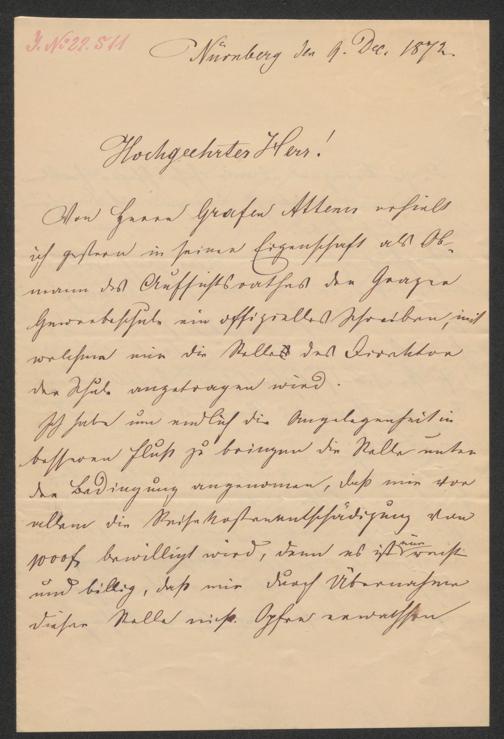 J. No 22.511
Nürnberg den 9. Dec. 1872.
Hochgeehrter Herr!
Von Herrn Grafen Attems erhielt
ich gestern in seiner Eigenschaft als Ob-
mann des Aufsichtsrathes der Grazer
Gewerbeschule ein offizielles Schreiben, mit
welchem mir die Stelle des Direktors
der Schule angetragen wird.
Ich habe um endlich die Angelegenheit in
besseren Fluß zu bringen die Stelle unter
der Bedingung angenommen, daß mir vor
allem die Reisekostenentschädigung von
bewilligt wird, denn es ist nur recht
und billig, daß mir durch Übernahme
dieser Stelle nicht Opfer erwachsen